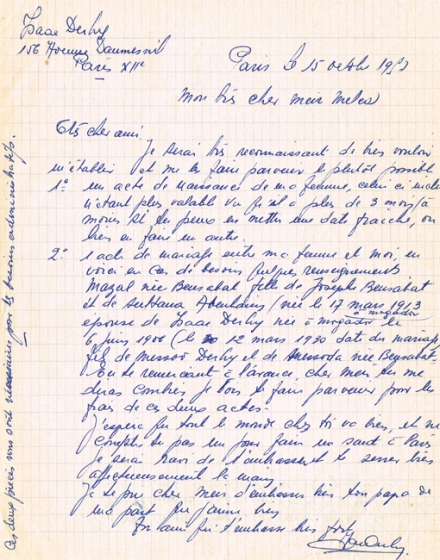 Isaac Derhy
156 Avenue Daumesnil
Paris XIIe
Paris le 15 octobre
Mon très cher Meir
Très cher ami,
Je serai très reconnaissant de bien vouloir
m'établir et me faire parvenir le plutôt possible
1° un acte de naissance de ma femme, celui ci
n'étant plus valable vu qu'il a plus de 3 mois
moins si tu peux en mettre une date fraiche, ou
bien en faire un autre.
2° l'acte de mariage entre ma femme et moi, en
voici en cas de besoin quelques renseignements
Mazal née Bensabat fille de Joseph Bensabat
et de Sultana née le 17 mars 1913
à mogador
épouse de Isaac Derhy né à mogador le
6 juin (le 12 mars 1930 date du mariage
fils de Messod Derhy et de Messoda née Bensabat.
En te remerciant à l'avance cher Meir tu me
diras combien je dois te faire parvenir pour les
frais de ces deux actes.
J'espère que tout le monde chez toi va bien, et ne
comptes tu pas un jour faire un saut à Paris
Je serai ravi de t'embrasser et te serrer bien
affectueusement la main.
Je te prie cher Meir d'embrasser bien ton papa de
ma part que j'aime bien
Ton ami qui t'embrasse bien fort
Ces deux pièces nous sont nécessaires pour